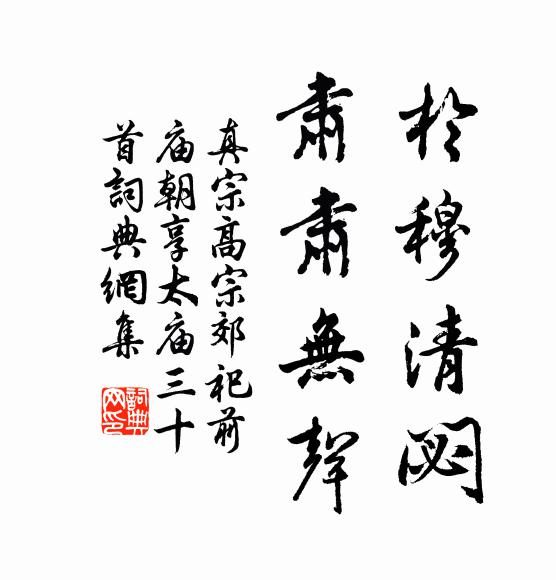 於穆清閟
肅肅無聲
真宗高宗郊祀前
庙朝享太庙三十
首詞典網集
詞典網印